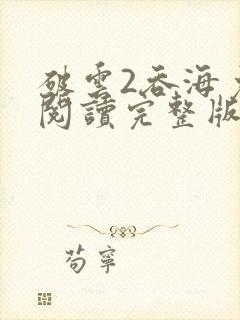 破雲2吞海
閱讀完整版
苟寧